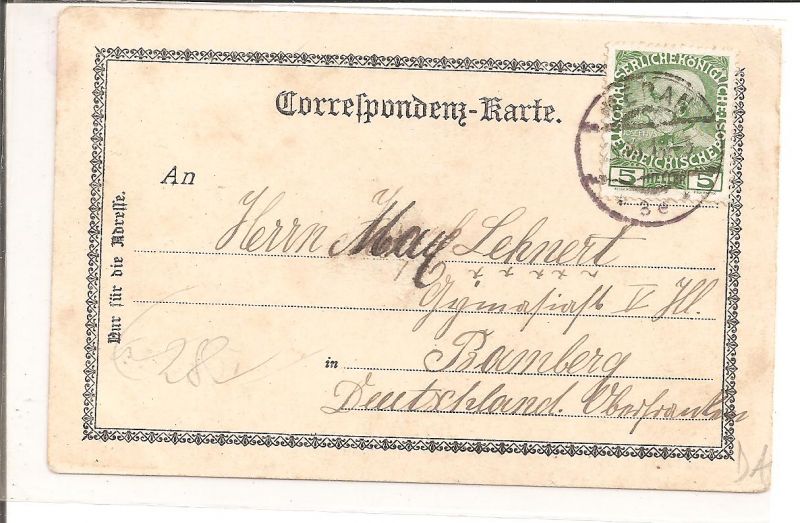 Correſpondenz-Karte.
KAISERLICHE KÖNIGLICHE
ÖSTERREICHISCHE
5 5
MERAN
3e
An
Herrn Max Lehnert
Gymnasiast V Kl.
in Bamberg
Deutschland. Oberfranken
Nur für die Adreſſe.
28
DA